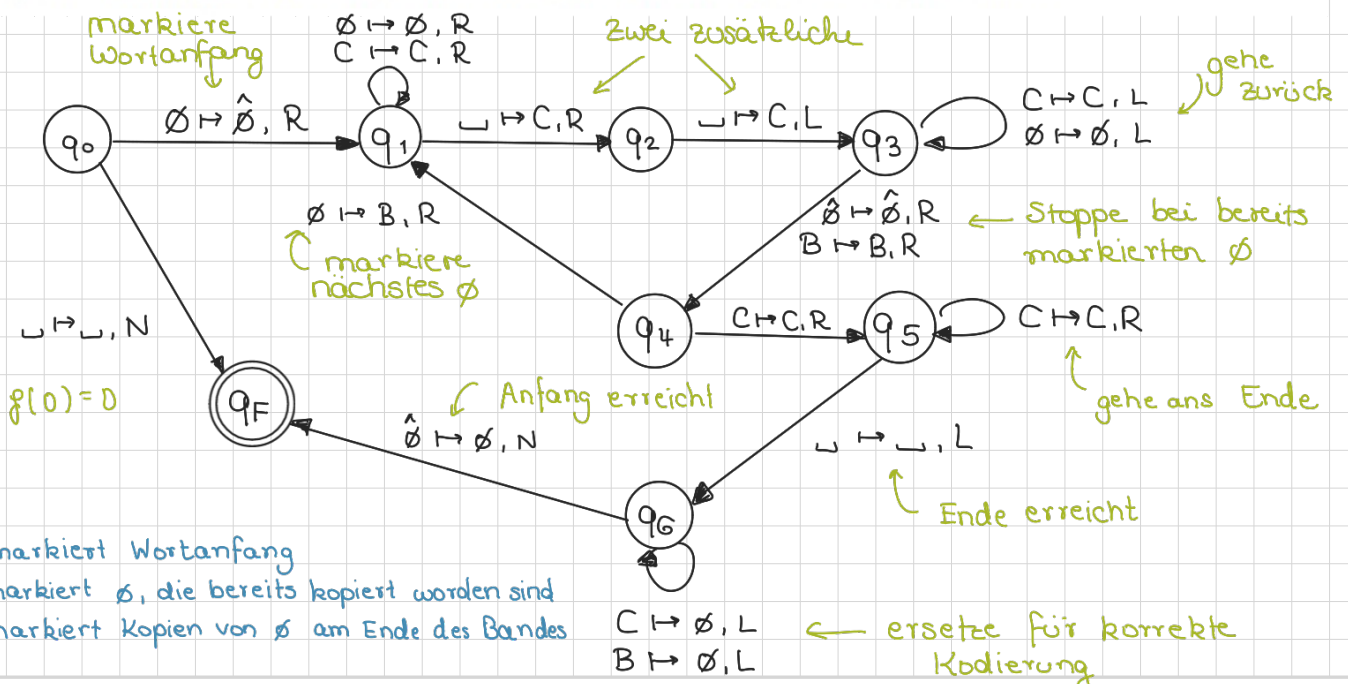 markiere
Wortanfang
∅ ↦ ∅, R
C ↦ C, R
Zwei zusätzliche
gehe
zurück
q0
∅ ↦ ∅̂, R
q1
␣ ↦ C, R
q2
␣ ↦ C, L
q3
C ↦ C, L
∅ ↦ ∅, L
∅ ↦ B, R
markiere
nächstes ∅
∅̂ ↦ ∅̂, R
B ↦ B, R
Stoppe bei bereits
markierten ∅
␣ ↦ ␣, N
q4
C ↦ C, R
q5
C ↦ C, R
gehe ans Ende
f(0) = 0
qF
Anfang erreicht
∅̂ ↦ ∅, N
␣ ↦ ␣, L
Ende erreicht
q6
markiert Wortanfang
markiert ∅, die bereits kopiert worden sind
markiert Kopien von ∅ am Ende des Bandes
C ↦ ∅, L
B ↦ ∅, L
ersetze für korrekte
Kodierung